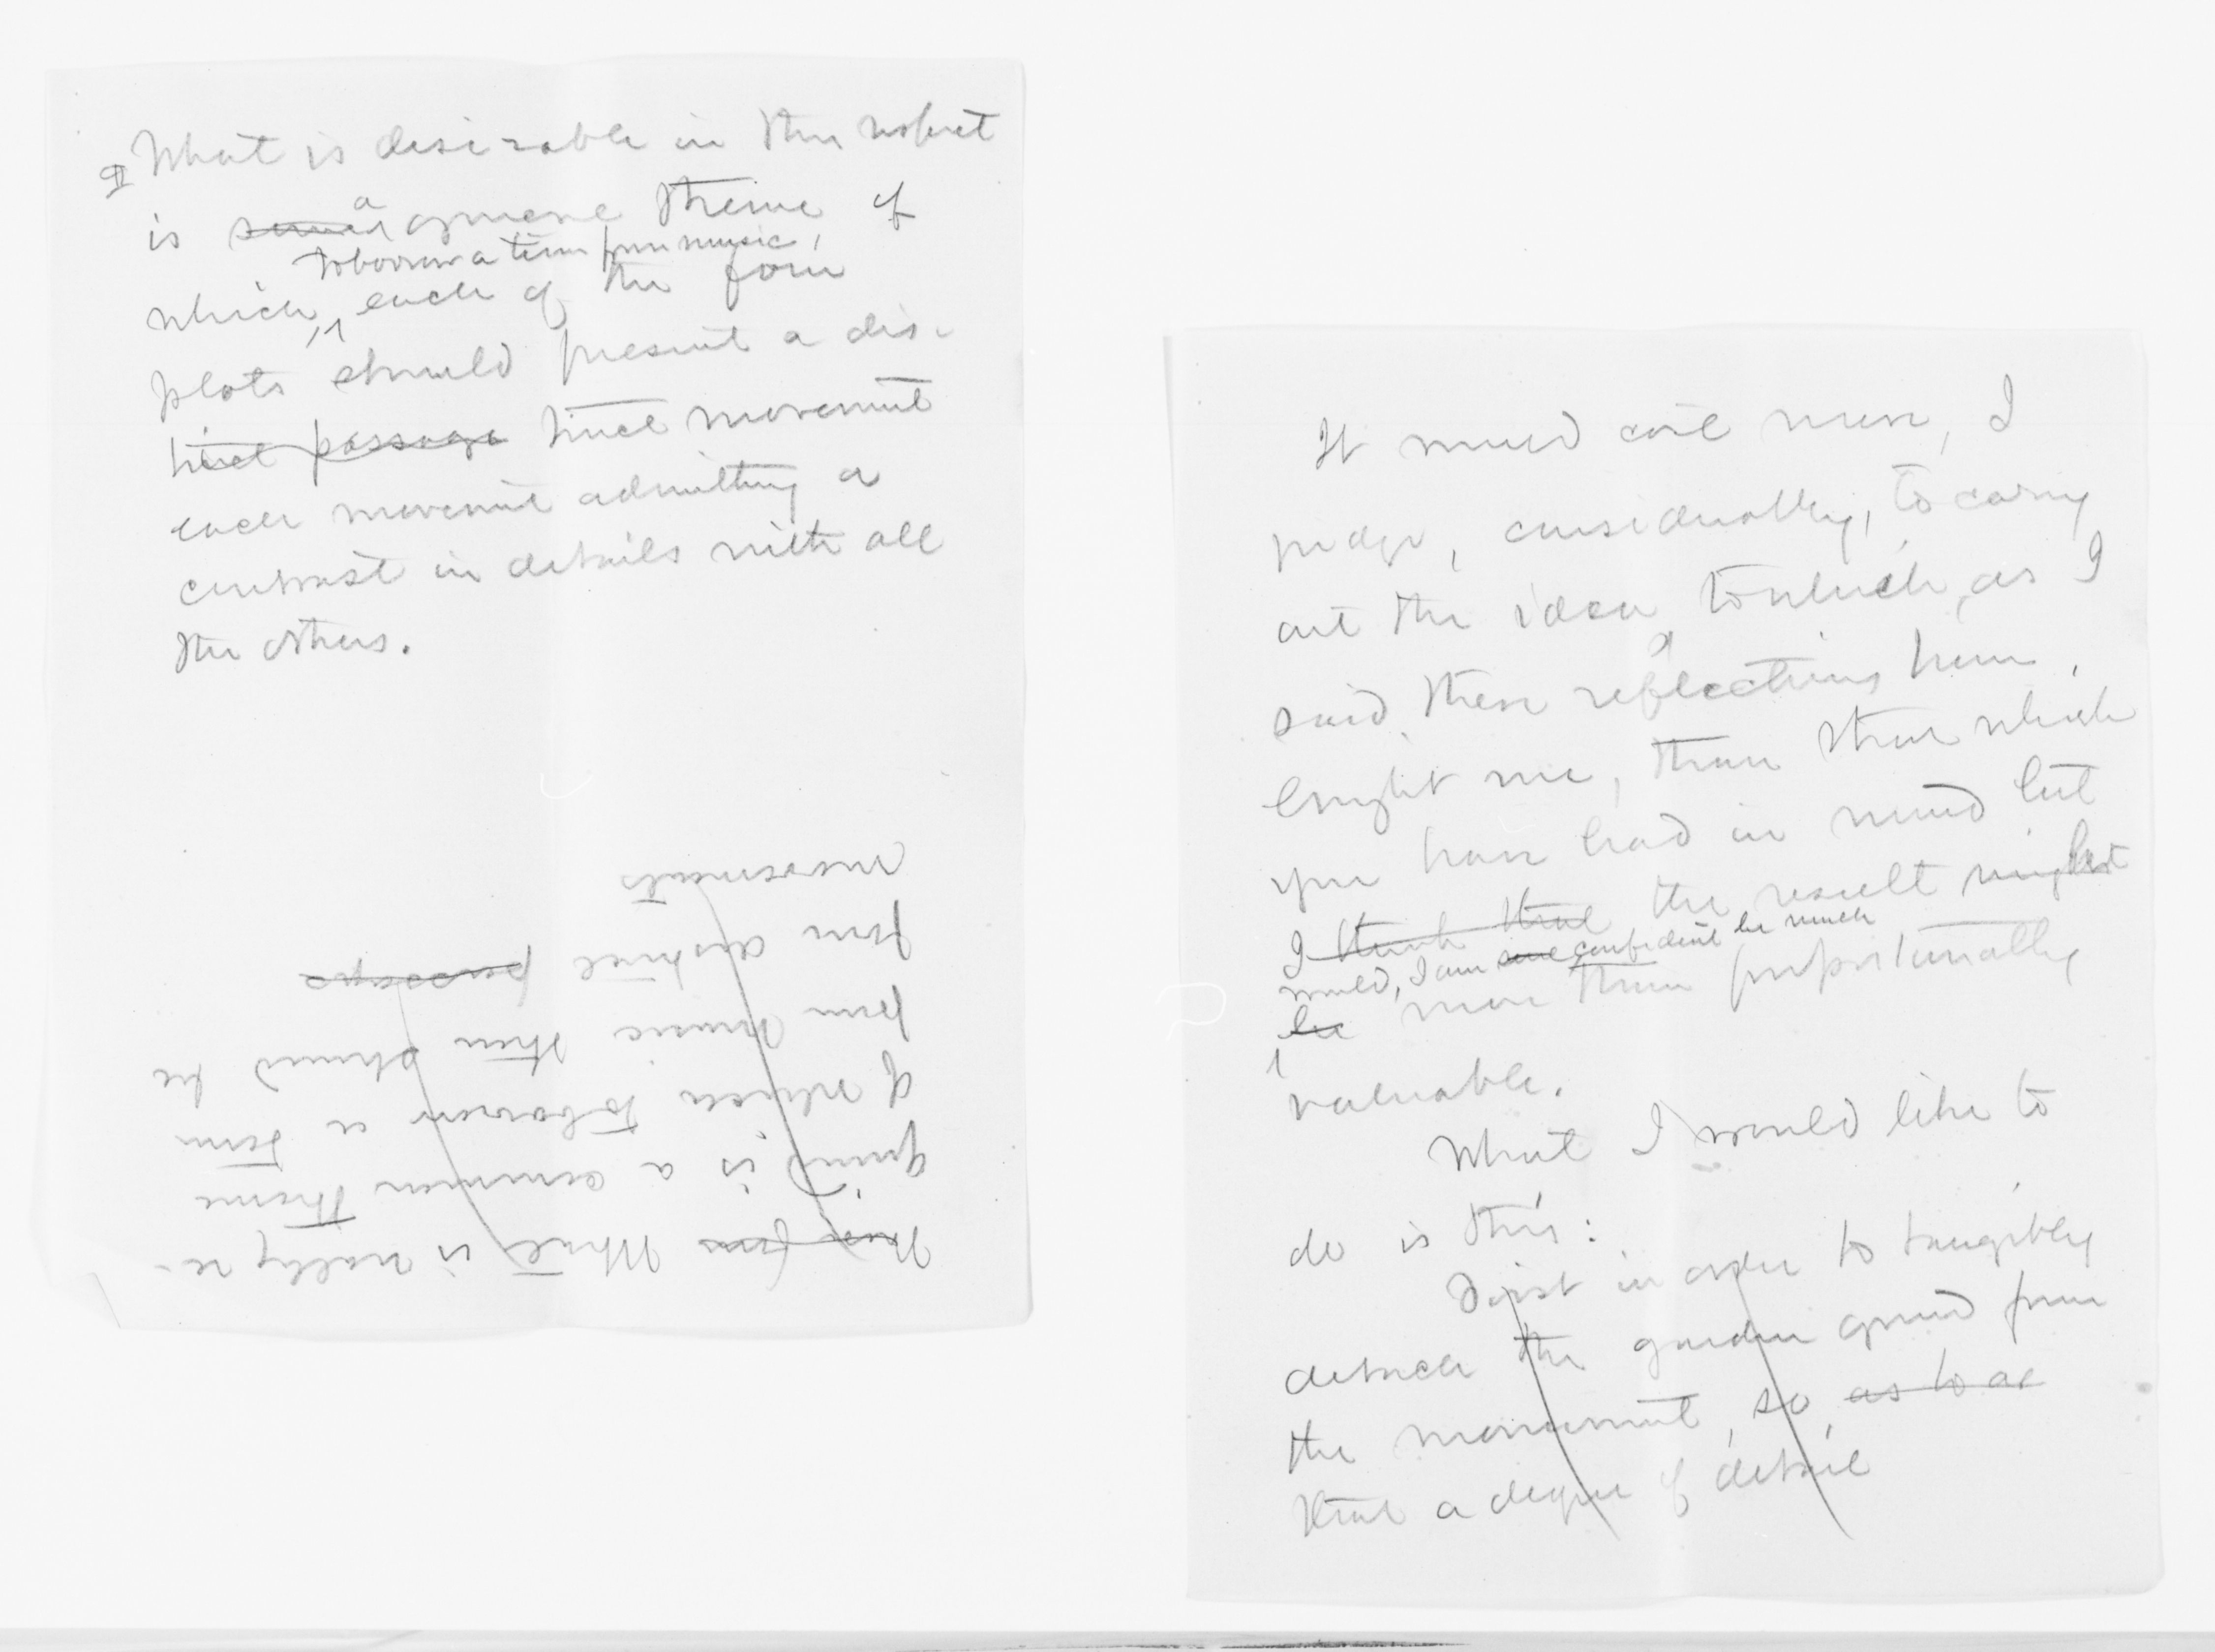 What is desirable in this respect
is some a general theme of
to borrow a term from music,
which, each of the four
plots should present a dis-
tinct passage tinct movement
each movement admitting a
contrast in details with all
the others.
What is really re-
quired is a common theme
of which to borrow a term
from music there should be
four distinct passage
movements
It would cost more, I
judge, considerably, to carry
out the idea to which, as I
said, these reflections have
brought me, than that which
you have had in mind but
I think that the result might
would, I am sure confident be much
be more than proportionally
valuable.
What I would like to
do is this:
First in order to tangibly
detach the garden ground from
the monument, so, as to ar
that a degree of detail